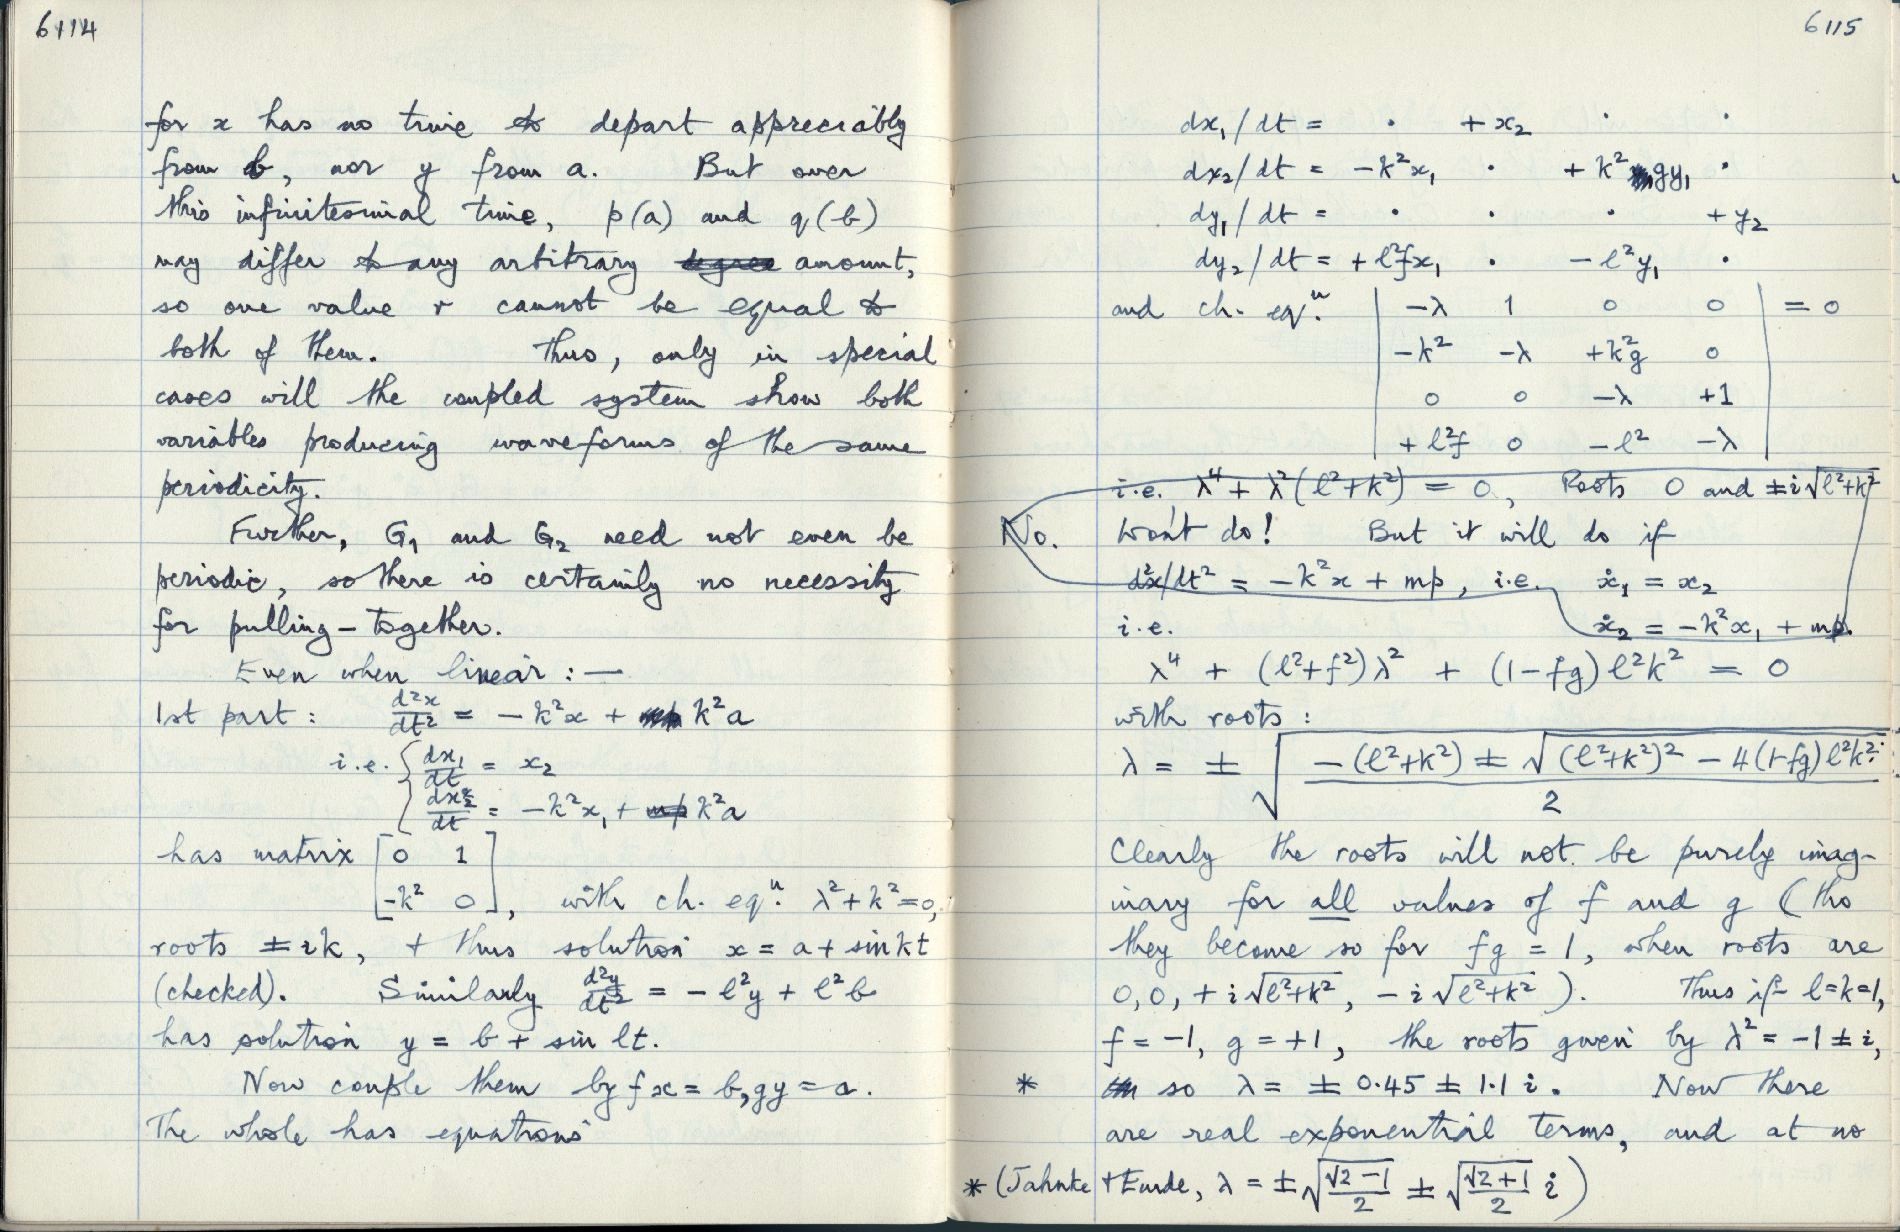 6114
for x has no time to depart appreciably
from b, nor y from a. But over
this infinitesimal time, p(a) and q(b)
may differ to any arbitrary degree amount,
so one value r cannot be equal to
both of them. Thus, only in special
cases will the coupled system show both
variables producing waveforms of the same
periodicity.
Further, G₁ and G₂ need not even be
periodic, so there is certainly no necessity
for pulling-together.
Even when linear :—
1st part : d²x/dt² = -k²x + mp k²a
i.e. { dx₁/dt = x₂
{ dx₂/dt = -k²x₁ + mp k²a
has matrix [ 0 1
-k² 0 ], with ch. eqⁿ. λ²+k²=0,
roots ±ik, + thus solution x = a + sin kt
(checked). Similarly d²y/dt² = -l²y + l²b
has solution y = b + sin lt.
Now couple them by fx = b, gy = a.
The whole has equations
6115
dx₁/dt = · +x₂ · ·
dx₂/dt = -k²x₁ · +k² gy₁ ·
dy₁/dt = · · · +y₂
dy₂/dt = +l²fx₁ · -l²y₁ ·
and ch. eqⁿ. | -λ 1 0 0 | = 0
-k² -λ +k²g 0
0 0 -λ +1
+l²f 0 -l² -λ
i.e. λ⁴ + λ²(l²+k²) = 0, Roots 0 and ±i√l²+k²
No. Won't do! But it will do if
d²x/dt² = -k²x + mp, i.e. ẋ₁ = x₂
i.e. ẋ₂ = -k²x₁ + mp.
λ⁴ + (l²+f²)λ² + (1-fg)l²k² = 0
with roots :
λ = ± √ -(l²+k²) ± √(l²+k²)² - 4(1-fg)l²k² / 2
Clearly the roots will not be purely imag-
inary for all values of f and g (tho
they become so for fg = 1, when roots are
0, 0, +i√l²+k², -i√l²+k² ). Thus if l=k=1,
f = -1, g = +1, the roots given by λ² = -1 ± i,
* so λ = ± 0.45 ± 1.1 i. Now there
are real exponential terms, and at no
* (Jahnke + Emde, λ = ±√ √2-1 / 2 ± √ √2+1 / 2 i )